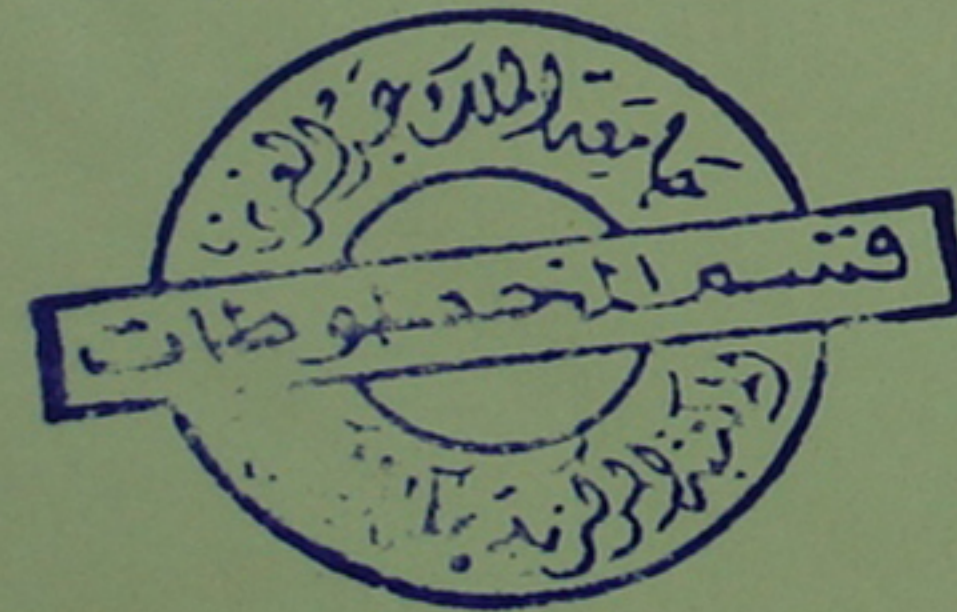 جامعة الملك عبد العزيز
قسم المخطوطات
المكتبة المركزية